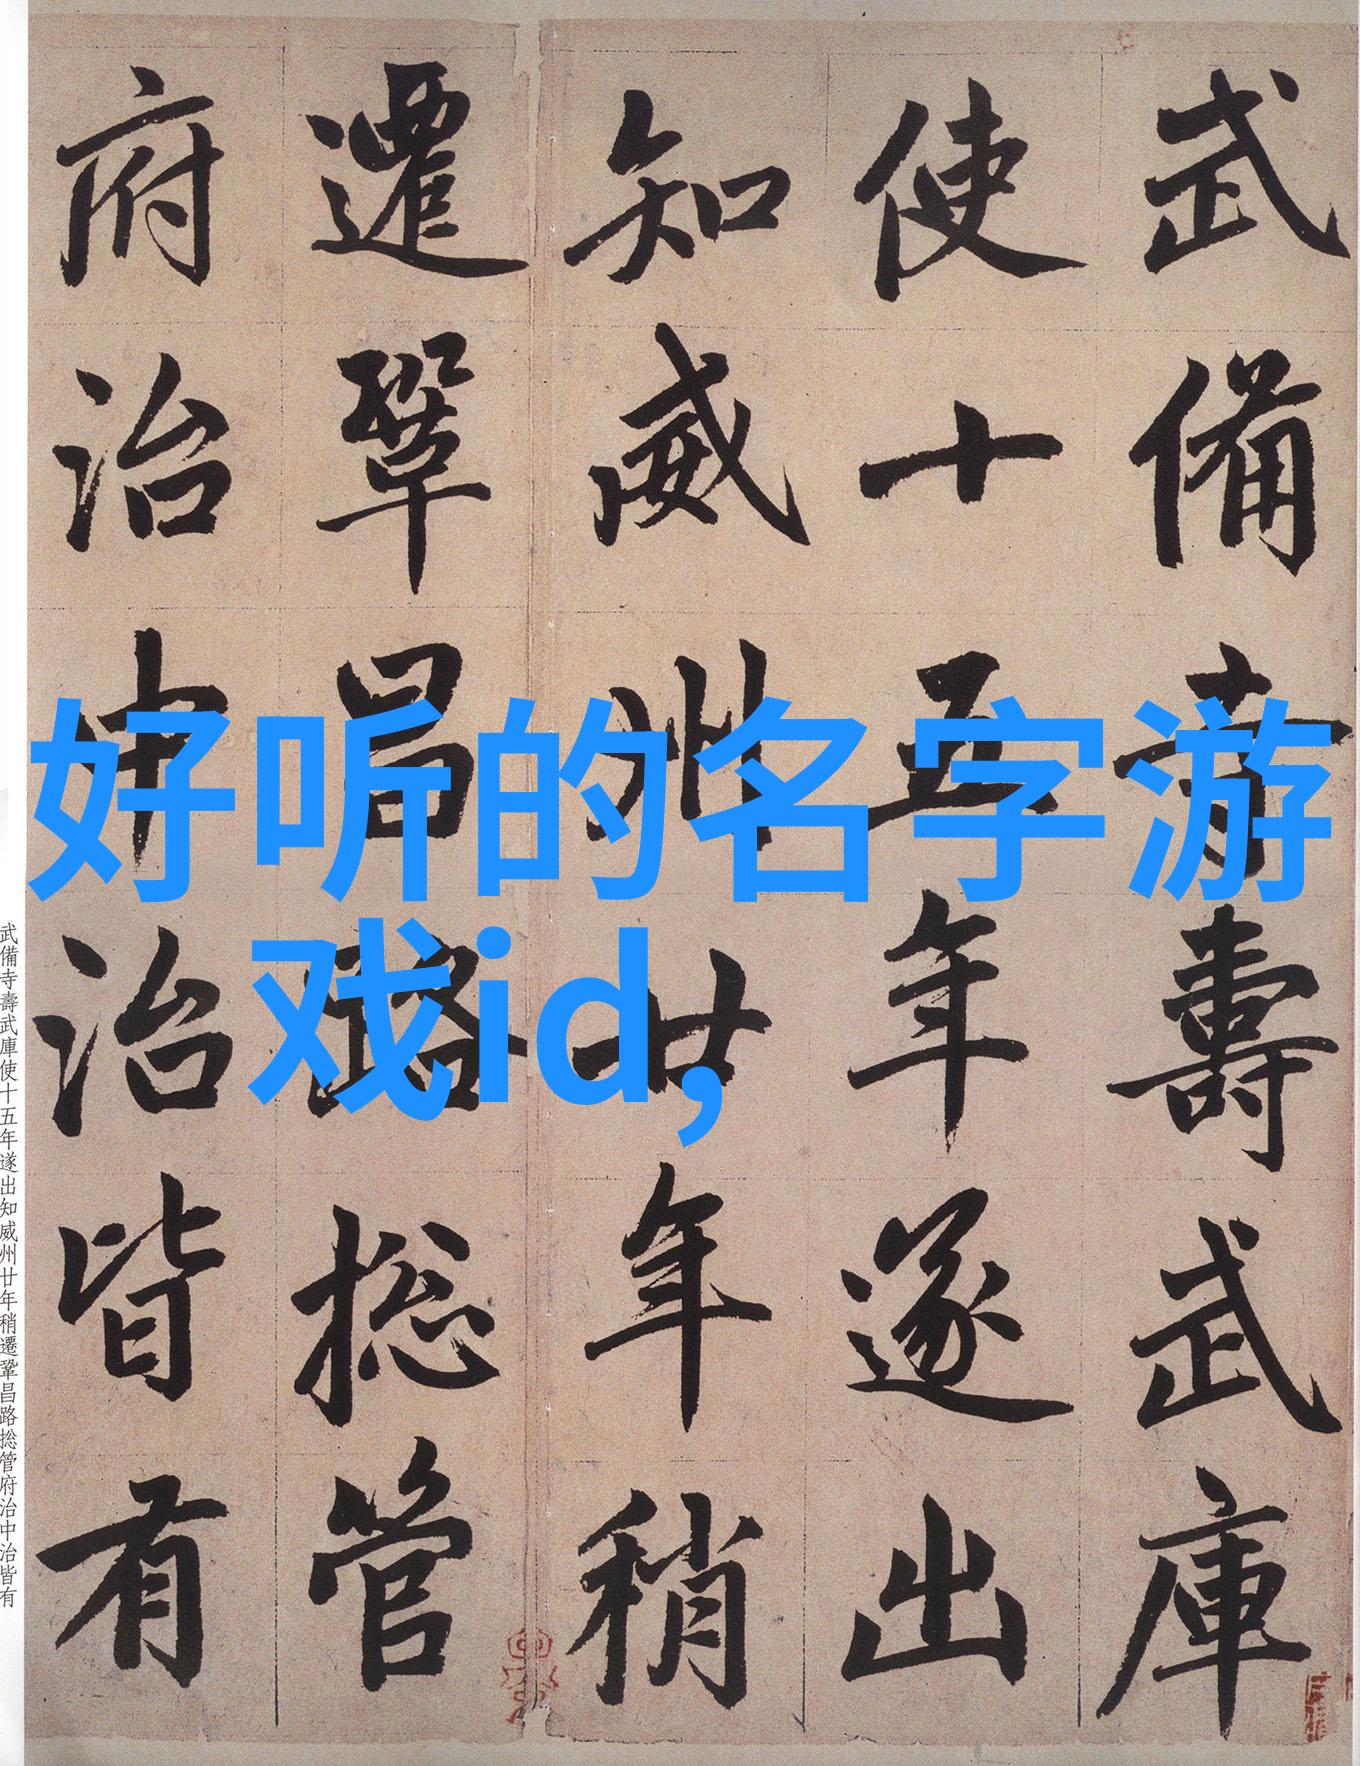 武備寺壽武庫
使十五年遂出
知威州廿年稍
遷鞏昌路捴管
府治中治皆有
好听的名字游
戏id,
武備寺壽武庫使十五年遂出知威州廿年稍遷鞏昌路捴管府治中治皆有